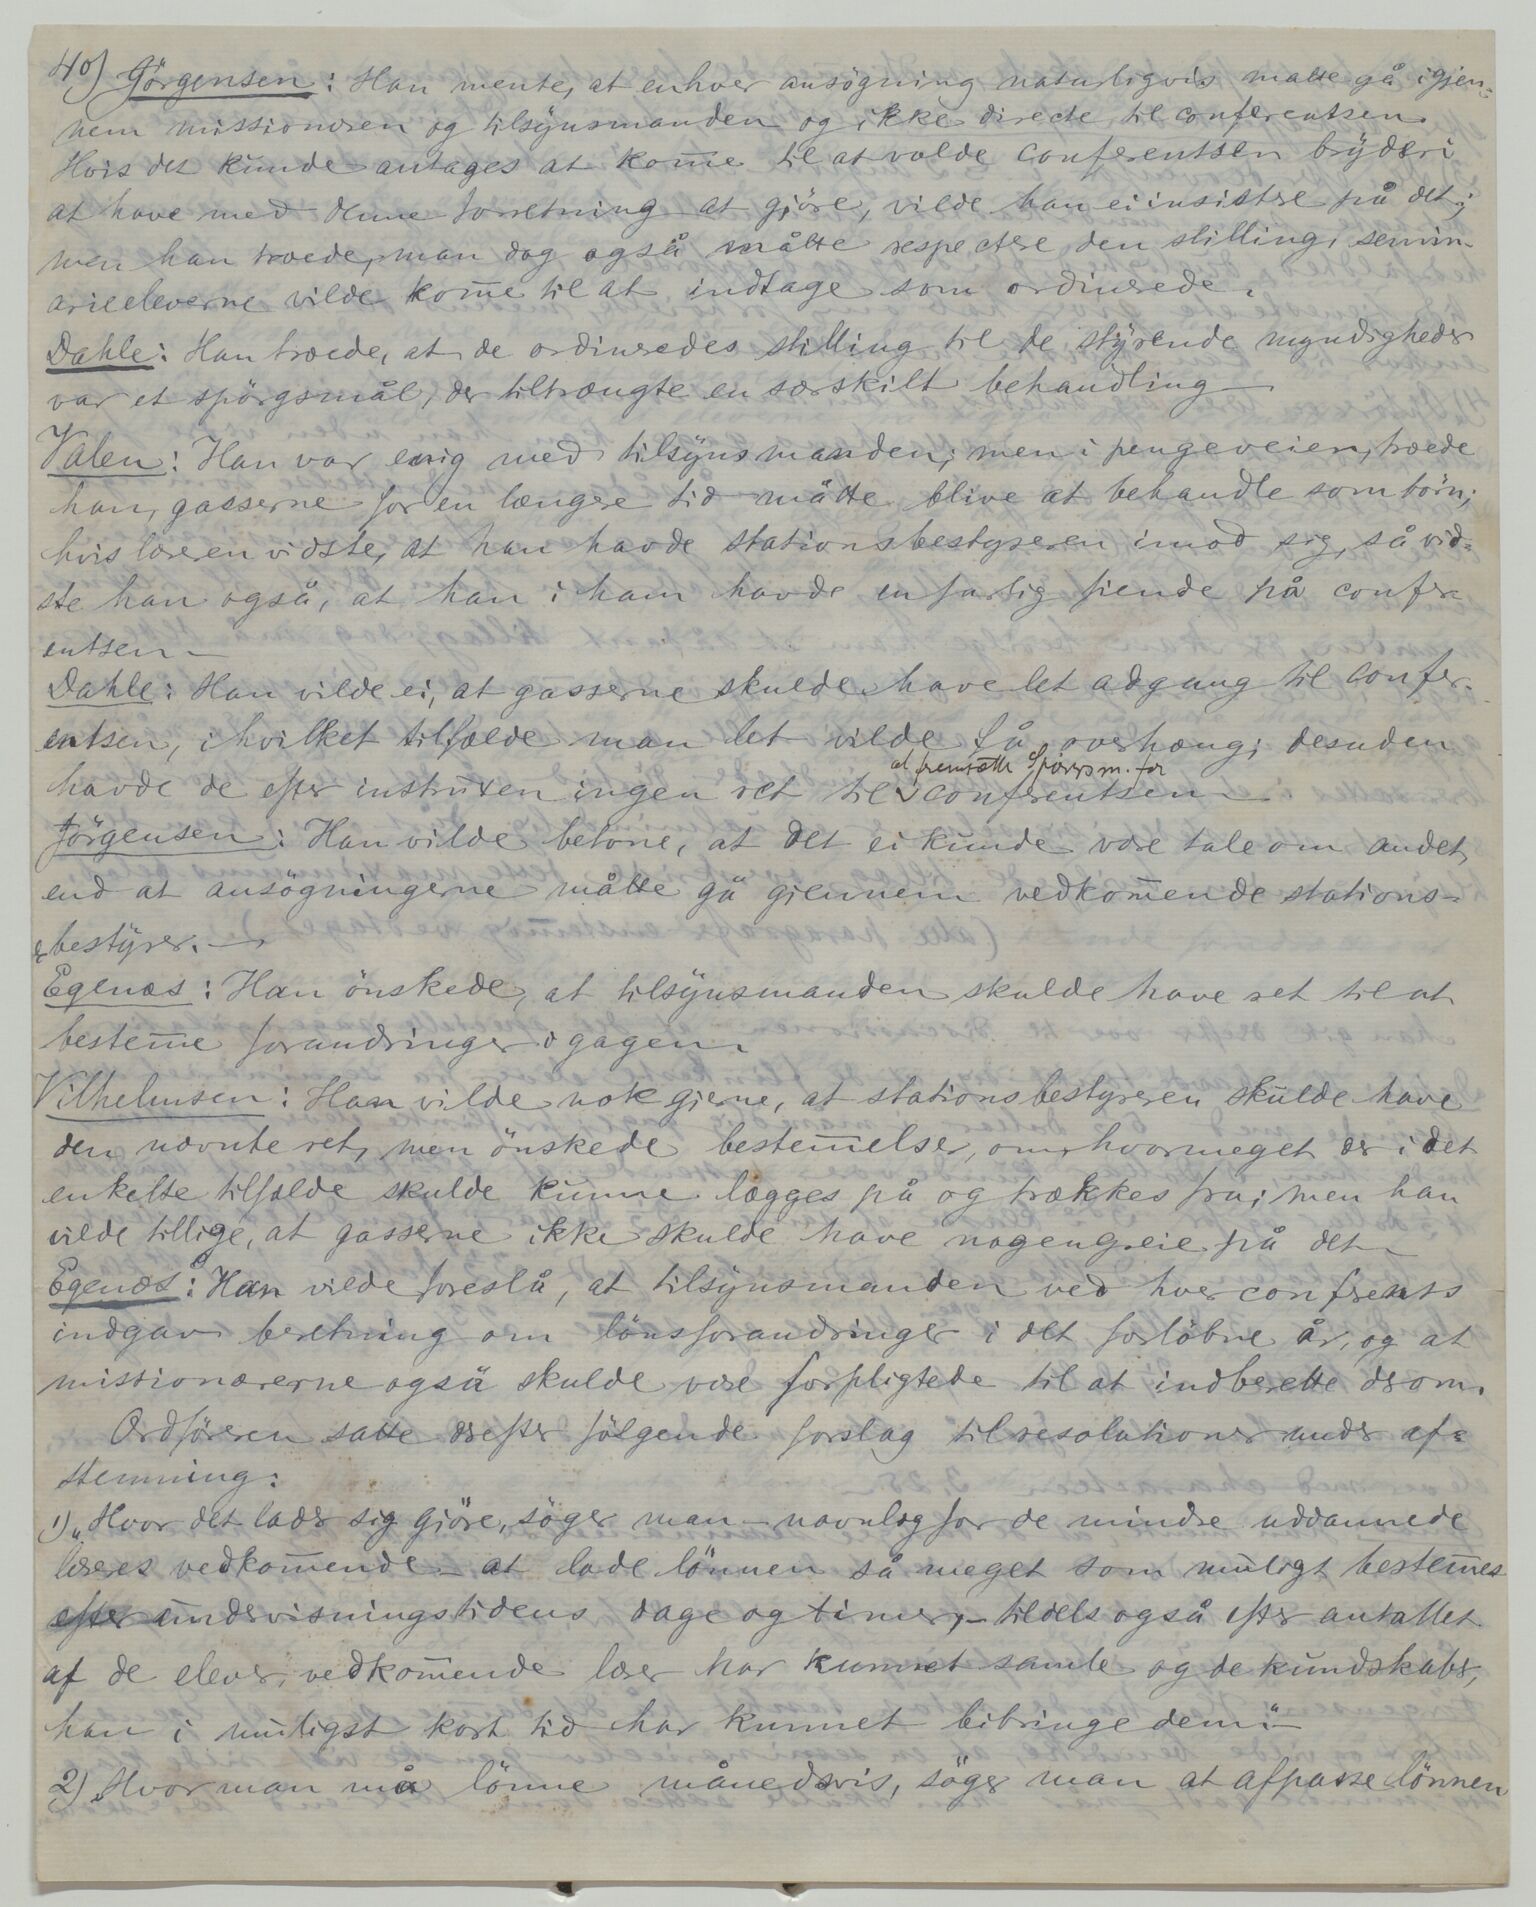 40) Jörgensen: Han mente, at enhver ansögning naturligvis måtte gå igjen-
nem missionæren og tilsynsmanden og ikke directe til conferentsen.
Hvis det kunde antages at kom̅e til at volde conferentsen bryderi
at have med denne forretning at gjöre, vilde han ei insistere på det;
men han troede, man dog også måtte respectere den stilling, semin-
arieeleverne vilde kom̅e til at indtage som ordinerede.
Dahle: Han troede, at de ordineredes stilling til de styrende myndigheder
var et spörgsmål, der tiltrængte en særskilt behandling —
Valen: Han var enig med tilsynsmanden; men i pengeveien, troede
han, gasserne for en længere tid måtte blive at behandle som börn;
hvis læreren vidste, at han havde stationsbestyreren imod sig, så vid-
ste han også, at han i ham havde en farlig fiende på confer-
entsen —
Dahle: Han vilde ei, at gasserne skulde have let adgang til confer-
entsen, i hvilket tilfælde man let vilde få overhæng; desuden
at fremsætte spörgsm. for
havde de efter instruxen ingen ret til √ conferentsen —
Jörgensen: Han vilde betone, at det ei kunde være tale om andet,
end at ansögningerne måtte gå gjennem vedkom̅ende stations-
bestyrer. —
Egenæs: Han önskede, at tilsynsmanden skulde have ret til at
bestem̅e forandringer i gagen.
Vilhelmsen: Han vilde nok gjerne, at stationsbestyreren skulde have
den nævnte ret, men önskede bestem̅elser, om hvormeget der i det
enkelte tilfælde skulde kunne lægges på og trækkes fra; men han
vilde tillige, at gasserne ikke skulde have nogen greie på det —
Egenæs: Han vilde foreslå, at tilsynsmanden ved hver conferents
indgav beretning om lönsforandringer i det forløbne år, og at
missionærerne også skulde være forpligtede til at indberette derom.
Ordföreren satte derefter fölgende forslag til resolutioner under af-
stemning:
1) „Hvor det lader sig gjöre, söger man — navnlig for de mindre uddannede
læreres vedkom̅ende — at lade lönnen så meget som muligt bestem̅es
efter undervisningstidens dage og timer, — tildels også efter antallet
af de elever, vedkom̅ende lærer har kunnet samle og de kundskaber,
han i muligst kort tid har kunnet bibringe dem“ —
2) „Hvor man må lönne månedsvis, söger man at afpasse lönnen